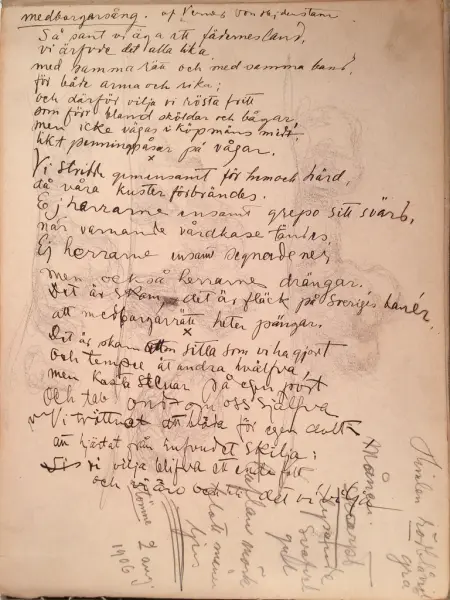 medborgarsång. af Verner von Heidenstam.
Så sant vi äga ett fädernesland,
vi ärfvde det alla lika,
med samma rätt och med samma band,
för både arma och rika;
och därför vilja vi rösta fritt
som förr bland sköldar och bågar,
men icke vägas i köpmäns midt,
likt penningpåsar på vågar.
Vi stridde gemensamt för hem och härd,
då våra kuster förbrändes.
Ej herrarne ensamt grepo sitt svärd,
när varnande vårdkase tändes.
Ej herrarne ensamt segnade ner,
men också herrarnes drängar.
Det är skam, det är fläck på Sveriges banér,
att medborgarrätt heter pängar.
Det är skam att sitta som vi ha gjort
och tempel åt andra hvälfva,
men kasta stenar på egen port
och tala ondt om oss själfva
Vi tröttnat att blöda för egen dolk
att hjärtat från hufvudet skilja;
vi vilja blifva ett enda
och vi äro och bli det vi vilja
Månen:
Himlen rödblå
grå
svart
gult
mörk
ljus
2 aug
1906